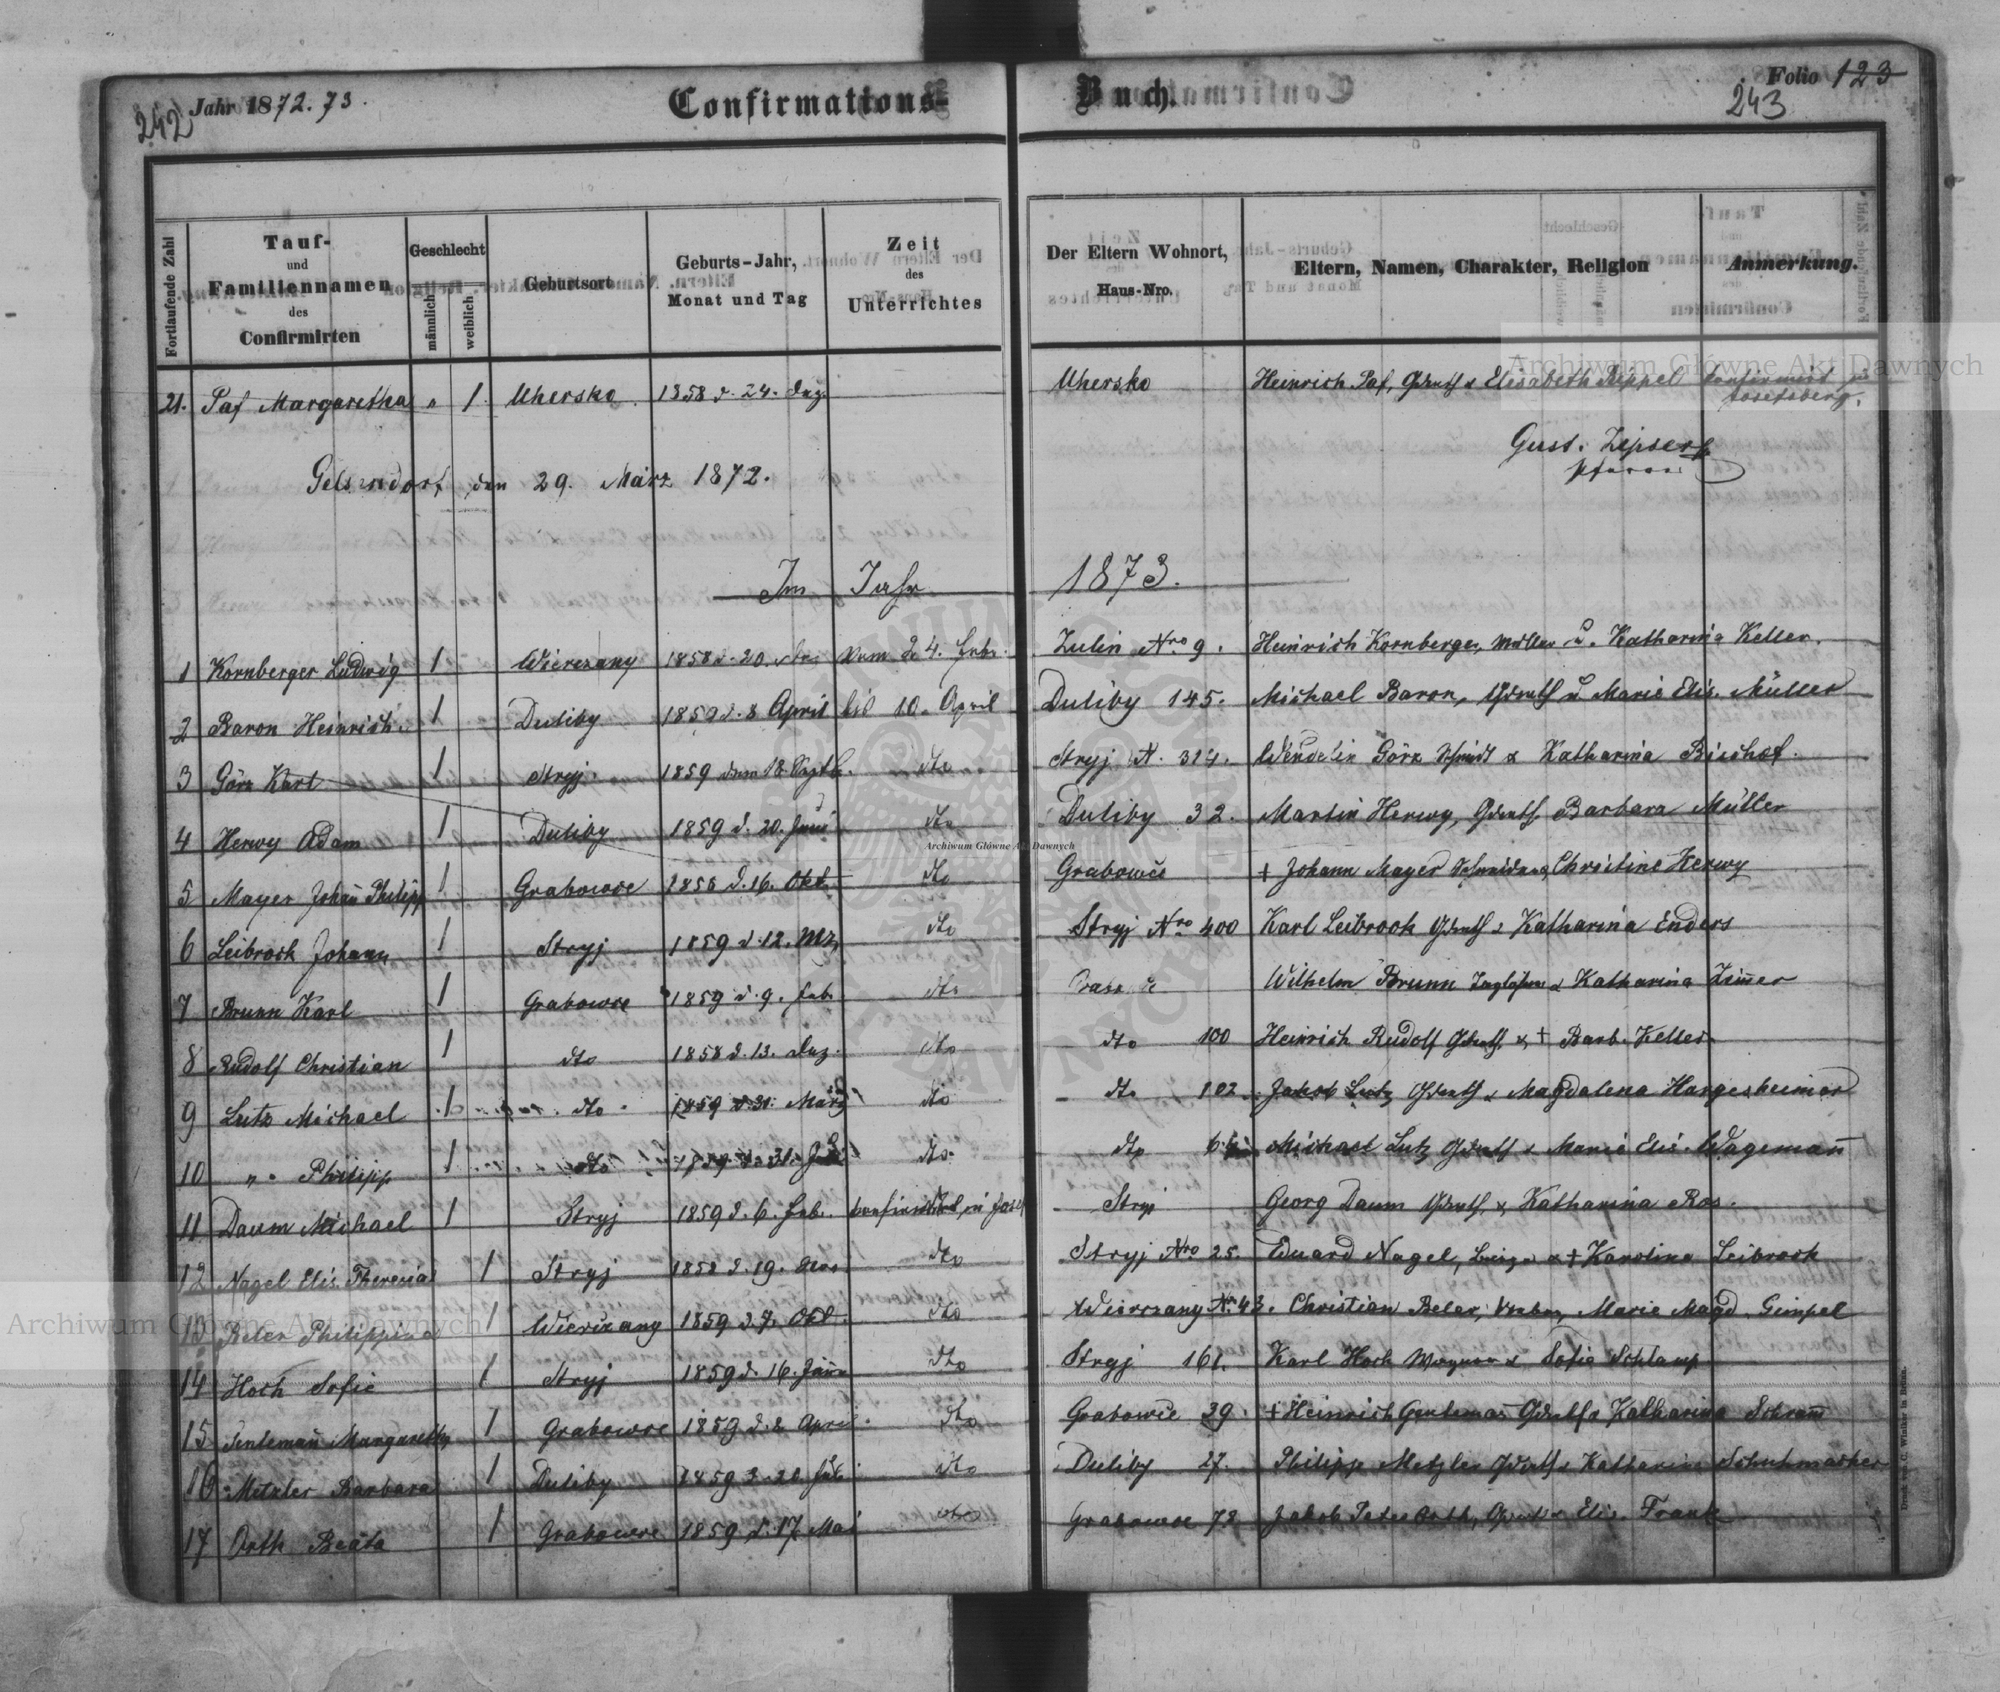 242 Jahr 1872.73. Confirmations-Buch. Folio 123
243
Fortlaufende Zahl | Tauf- und Familiennamen des Confirmirten | Geschlecht männlich weiblich | Geburtsort | Geburts-Jahr, Monat und Tag | Zeit des Unterrichtes | Der Eltern Wohnort, Haus-Nro. | Eltern, Namen, Charakter, Religion | Anmerkung.
21. Paf Margaretha " 1. Uhersko 1858 d. 24. Dez. Uhersko Heinrich Paf, Gdwth & Elisabeth Rippel confirmirt in Josefsberg.
Gelsendorf, den 29. März 1872. Gust. Zipser
Pfarrer
Im Jahr 1873.
1 Kornberger Ludwig 1 Wierczany 1858 d. 20. vom 24. Febr. Zulin Nro 9. Heinrich Kornberger, Müller u. Katharina Keller.
2 Baron Heinrich 1 Duliby 1859 d. 8 April bis 10. April Duliby 145. Michael Baron, Gdwth u Marie Elis. Müller
3 Görz Karl 1 Stryj 1859 den 18. Septb. dto Stryj N. 314. Wendelin Görz Schmidt & Katharina Bischof.
4 Herwy Adam 1 Duliby 1859 d. 20. Juni dto Duliby 32. Martin Herwy, Gdwth. Barbara Müller
5 Mayer Johan̄ Philipp 1 Grabowce 1858 d. 16. Okt. dto Grabowce + Johann Mayer Christine Herwy
6 Leibrock Johann 1 Stryj 1859 d. 12. Mz dto Stryj Nro 400 Karl Leibrock Gdwth & Katharina Enders
7 Brunn Karl 1 Grabowce 1859 d. 9. Feb. dto Wilhelm Brunn Taglöhner & Katharina Zim̄er
8 Rudolf Christian 1 dto 1858 d. 13. Dez. dto dto 100 Heinrich Rudolf Gdwth & + Barb. Keller
9 Lutz Michael 1 dto 1859 d 31. März dto dto 102. Jakob Lutz Gdwth & Magdalena Hargesheimer
10 " Philipp 1 dto 1859 d. 31. dto dto Michael Lutz Gdwth & Marie Elis. Wageman̄
11 Daum Michael 1 Stryj 1859 d. 6. Feb. confirmirt in Josef Stryj Georg Daum Gdwth. & Katharina Ros.
12 Nagel Elis. Theresia 1 Stryj 1858 d. 19. dto Stryj Nro 25. Eduard Nagel, & + Karolina Leibrock
13 Beler Philippina 1 Wierczany 1859 d. 7. Okt. dto Wierczany N. 43. Christian Beler, Weber, Marie Magd. Gimpel
14 Hoch Sofie 1 Stryj 1859 d. 16. Jän̄er dto Stryj 161. Karl Hoch Wagner & Sofie Schlamp
15 Genteman̄ Margaretha 1 Grabowce 1859 d. 2. April dto Grabowce 39. + Heinrich Genteman̄ Gdwth & Katharina Schram̄
16 Metzler Barbara 1 Duliby 1859 d. 20. dto Duliby 27. Philipp Metzler Gdwth & Katharina Schuhmacher
17 Orth Beäta 1 Grabowce 1859 d. 17. Mai dto Grabowce 72 Jakob Peter Orth, Gdwth & Elis. Frank
Druck von C. Winiker in Brünn.
Archiwum Główne Akt Dawnych
Archiwum Główne Akt Dawnych
Archiwum Główne Akt Dawnych